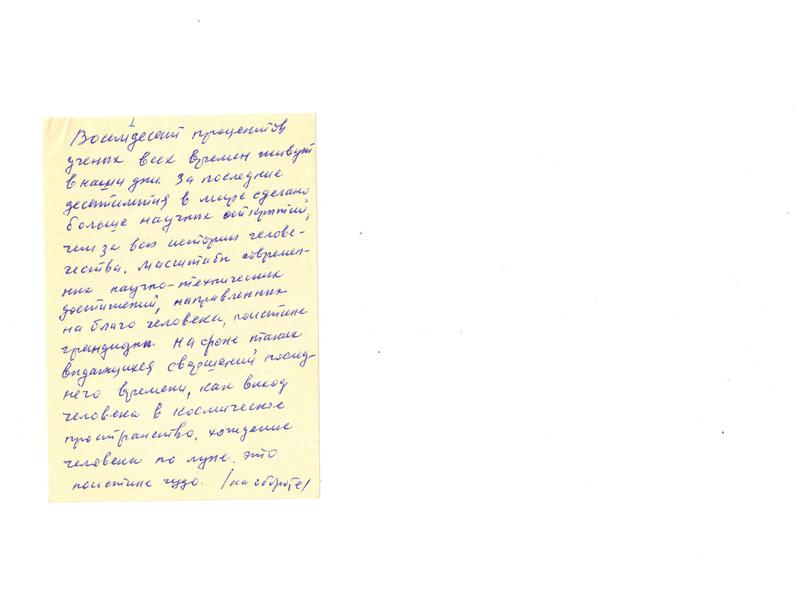 1
Восемдесят процентов
ученых всех времен живут
в наши дни. За последние
десятилетия в мире сделано
больше научных открытий,
чем за всю историю челове-
чества. Масштабы современ-
ных научно-технических
достижений, направленных
на благо человека, поистине
грандиозны На фоне таких
выдающихся свершений послед-
него времени, как выход
человека в космическое
пространство, хождение
человека по луне. это
поистине чудо. /на обороте/